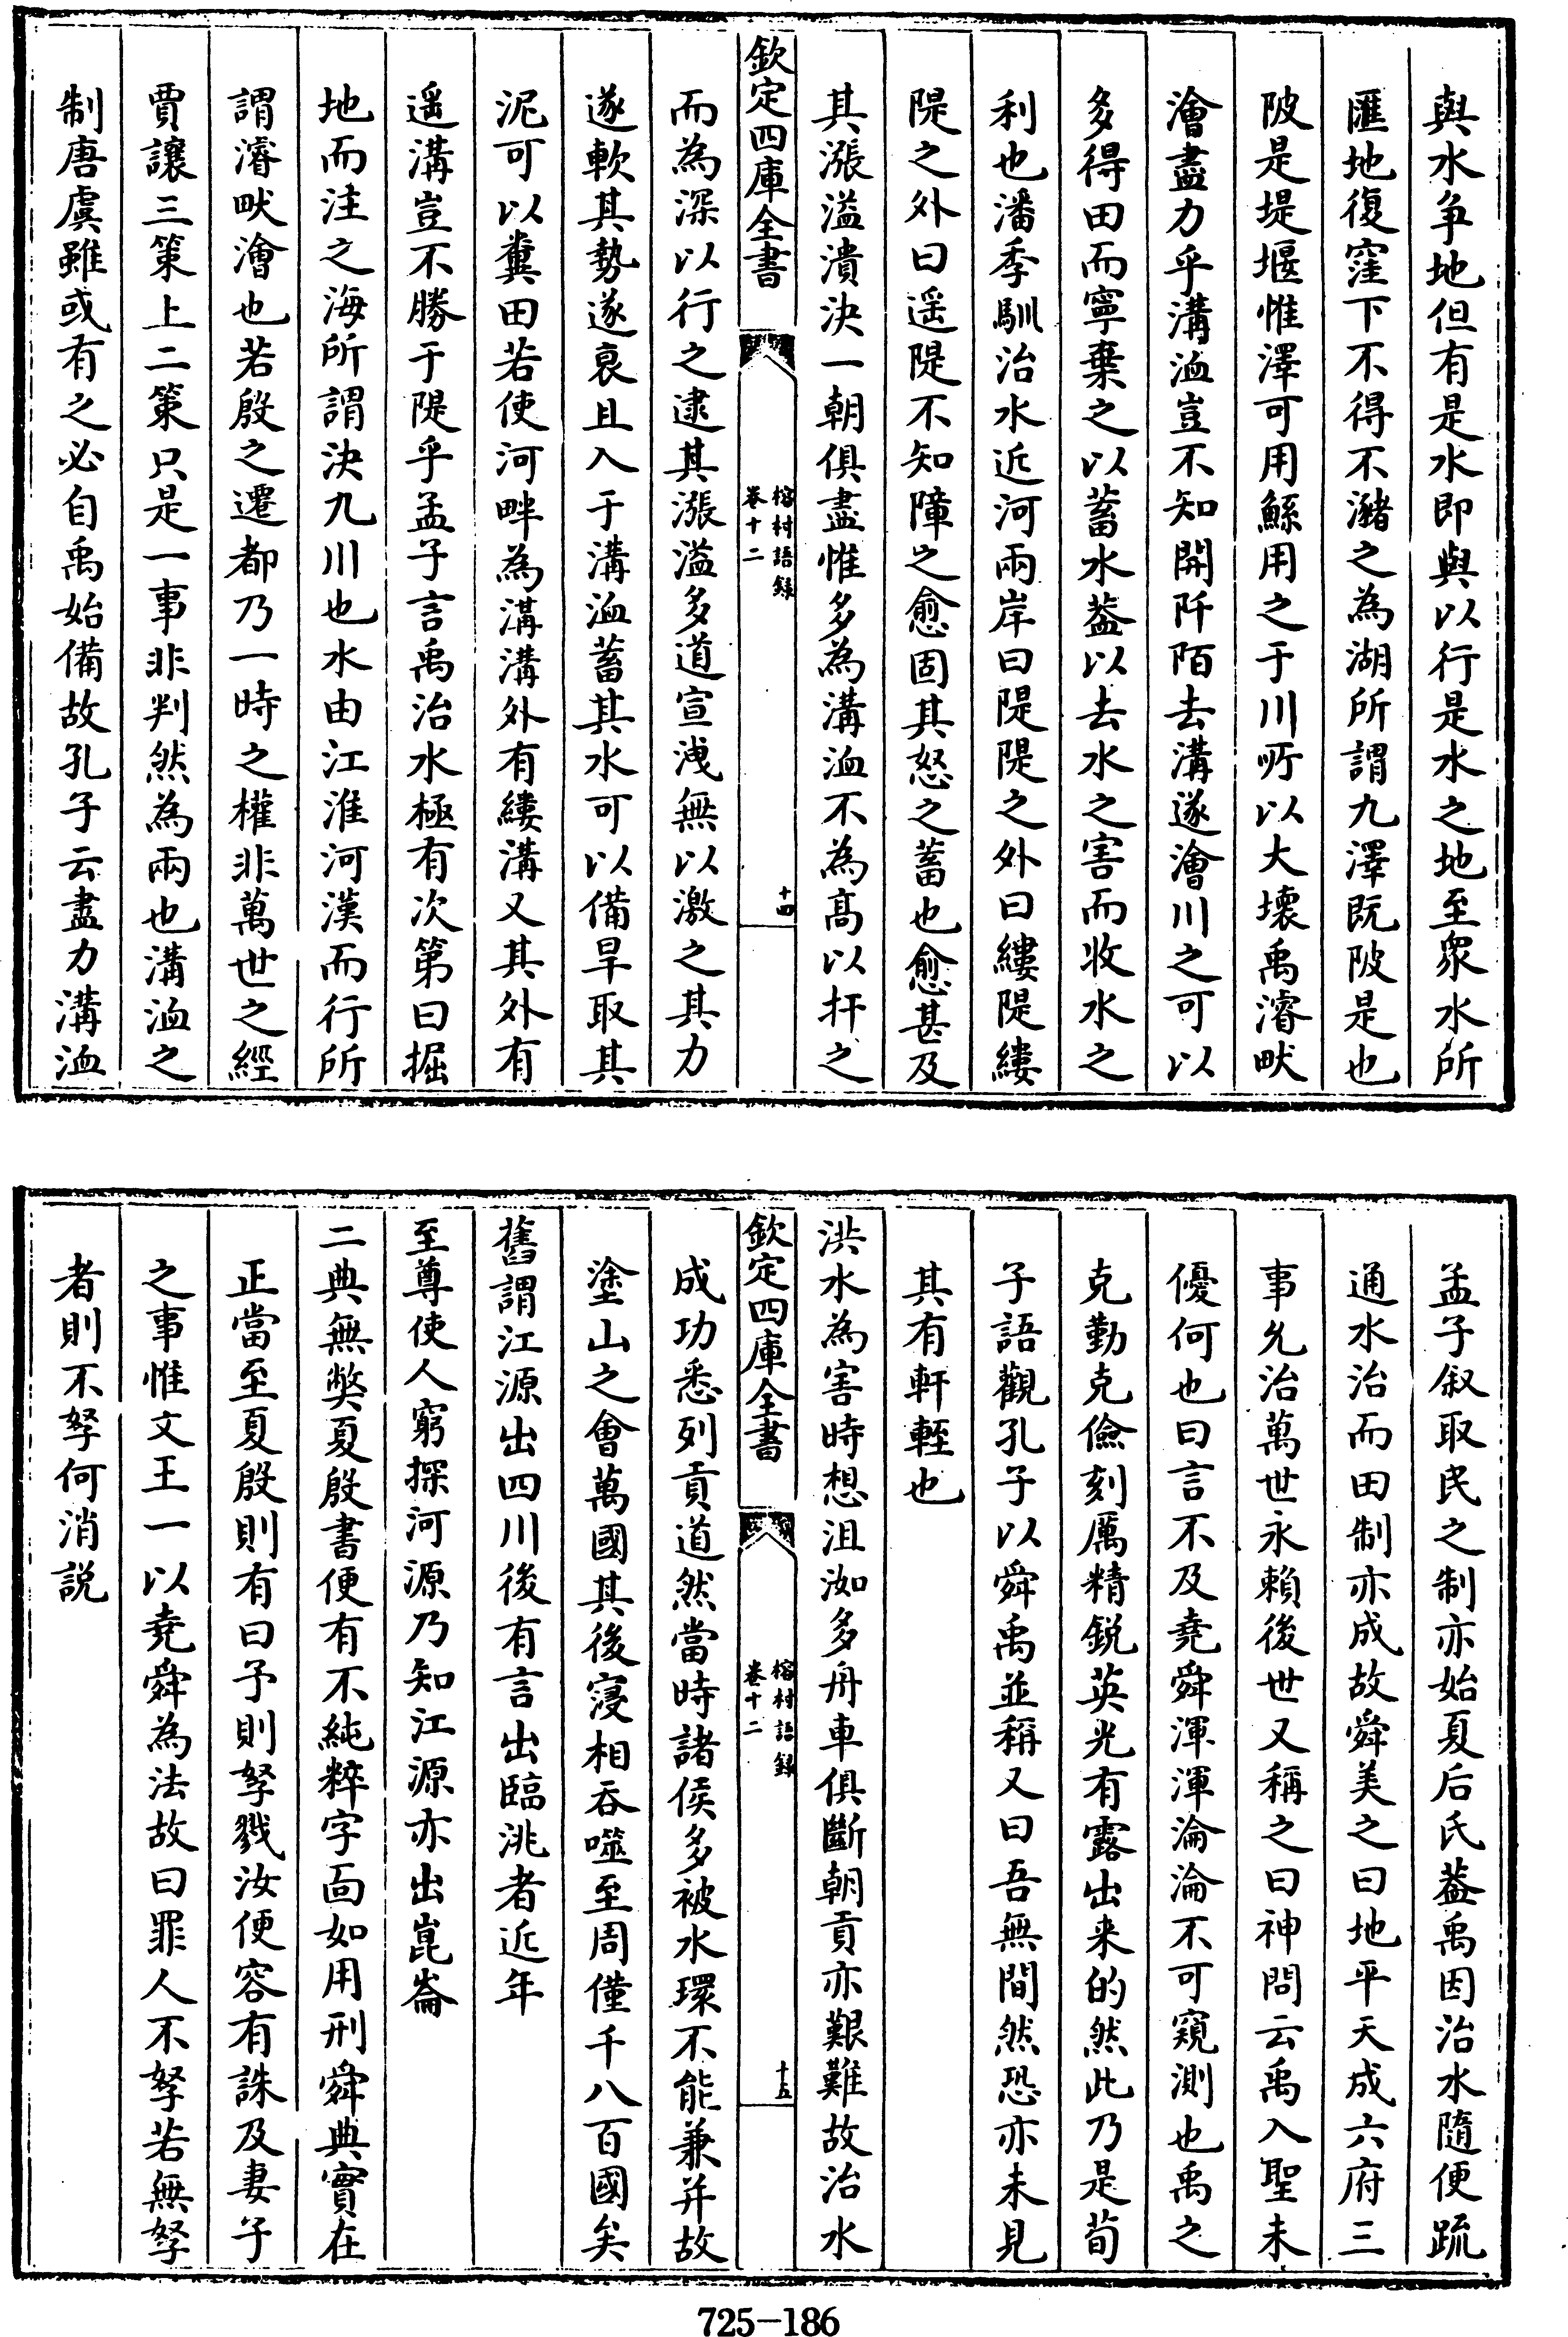 與水爭地但有是水即與以行是水之地至衆水所
匯地復窪下不得不瀦之為湖所謂九澤既陂是也
陂是堤堰惟澤可用鯀用之于川所以大壞禹濬畎
澮盡力乎溝洫豈不知開阡陌去溝遂澮川之可以
多得田而寧棄之以蓄水葢以去水之害而收水之
利也潘季馴治水近河兩岸曰隄隄之外曰縷隄縷
隄之外曰遥隄不知障之愈固其怒之蓄也愈甚及
其漲溢潰決一朝俱盡惟多為溝洫不為高以扞之
欽定四庫全書
榕村語錄
卷十二
十四
而為深以行之逮其漲溢多道宣洩無以激之其力
遂軟其勢遂衰且入于溝洫蓄其水可以備旱取其
泥可以糞田若使河畔為溝溝外有縷溝又其外有
遥溝豈不勝于隄乎孟子言禹治水極有次第曰掘
地而注之海所謂決九川也水由江淮河漢而行所
謂濬畎澮也若殷之遷都乃一時之權非萬世之經
賈讓三策上二策只是一事非判然為兩也溝洫之
制唐虞雖或有之必自禹始備故孔子云盡力溝洫
孟子叙取民之制亦始夏后氏葢禹因治水隨便疏
通水治而田制亦成故舜美之曰地平天成六府三
事允治萬世永賴後世又稱之曰神問云禹入聖未
優何也曰言不及堯舜渾渾淪淪不可窺測也禹之
克勤克儉刻厲精鋭英光有露出来的然此乃是荀
子語觀孔子以舜禹並稱又曰吾無間然恐亦未見
其有軒輊也
洪水為害時想沮洳多舟車俱斷朝貢亦艱難故治水
欽定四庫全書
榕村語錄
卷十二
十五
成功悉列貢道然當時諸侯多被水環不能兼并故
塗山之會萬國其後寖相吞噬至周僅千八百國矣
舊謂江源出四川後有言出臨洮者近年
至尊使人窮探河源乃知江源亦出崑崙
二典無弊夏殷書便有不純粹字面如用刑舜典實在
正當至夏殷則有曰予則孥戮汝便容有誅及妻子
之事惟文王一以堯舜為法故曰罪人不孥若無孥
者則不孥何消説
725-186